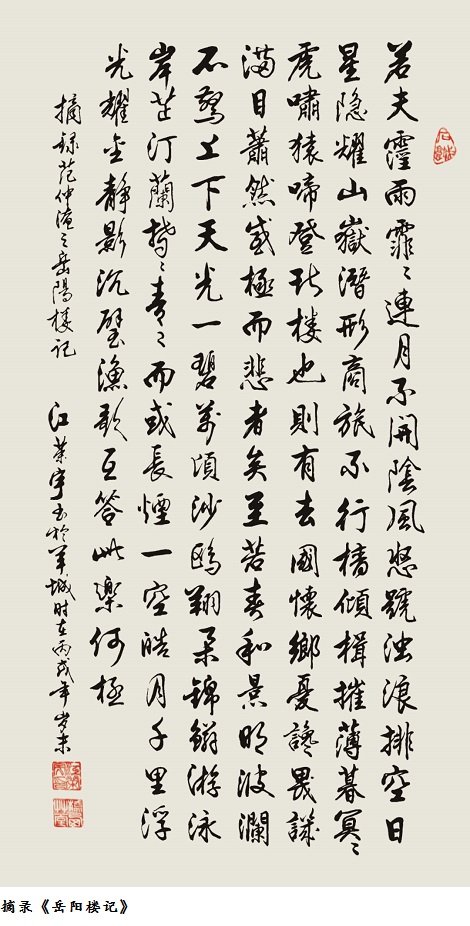 若夫霪雨霏〻連月不開陰風怒號浊浪排空日
星隐耀山嶽潛形商旅不行檣傾楫摧薄暮冥〻
虎嘯猿啼登斯楼也則有去國懷鄉憂讒畏譏
滿目蕭然感極而悲者矣至若春和景明波瀾
不驚上下天光一碧萬頃沙鷗翔集錦鳞游泳
岸芷汀蘭鬱〻青〻而或長煙一空皓月千里浮
光耀金静影沉璧漁歌互答此樂何極
摘録范仲淹之岳陽楼記
江宇书於羊城时在丙戌年岁末
摘录《岳阳楼记》